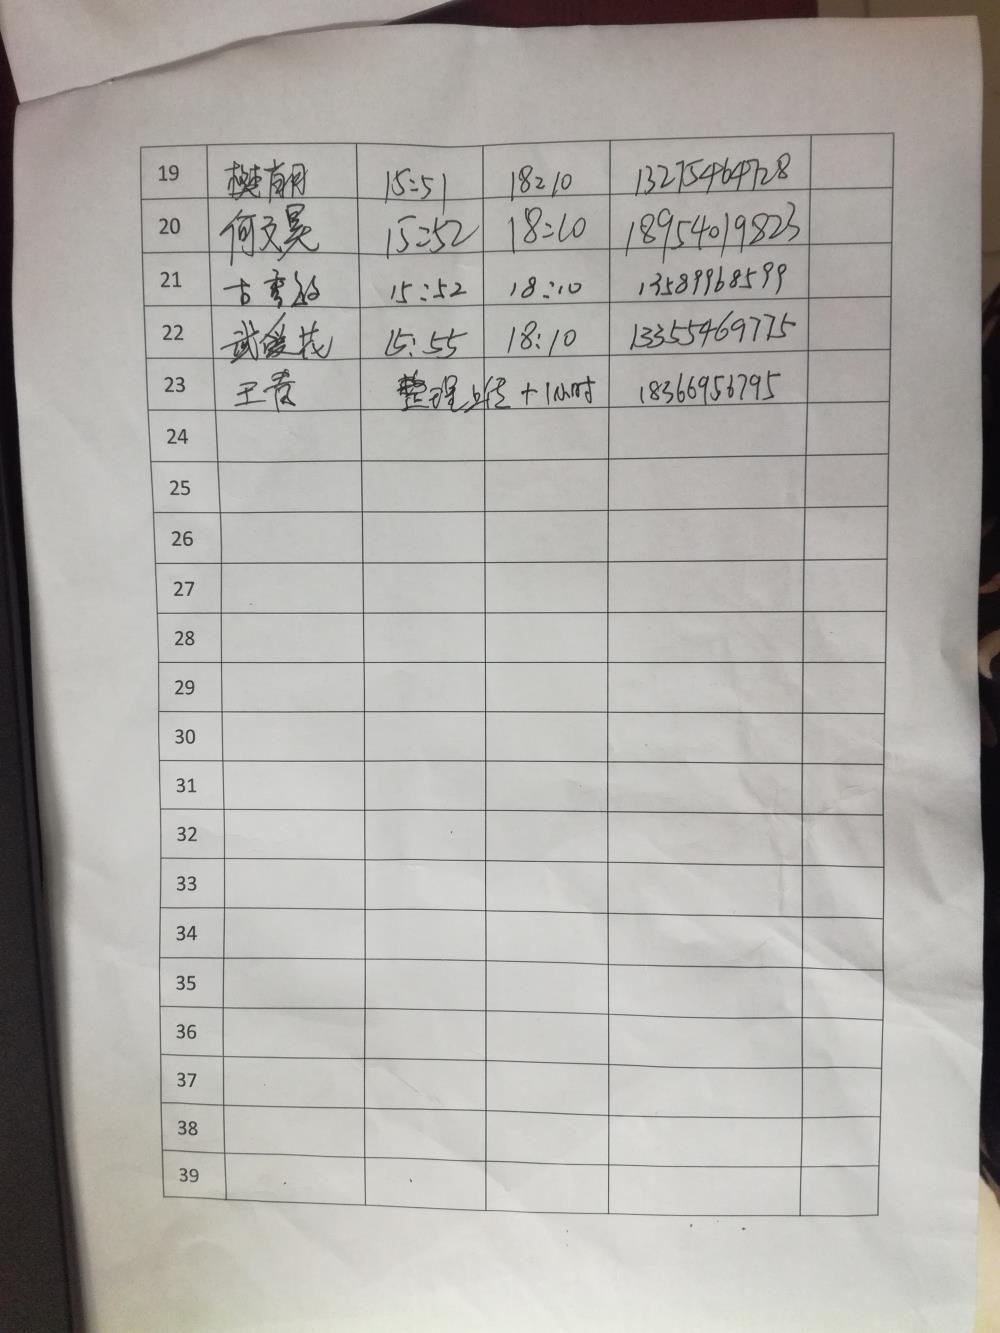 19 樊 15:51 18:10 13275464728
20 何文昊 15:52 18:10 18954019823
21 古 15:52 18:10 13589968599
22 武爱花 15:55 18:10 13355469775
23 王春 整理上传+1小时 18366956795
24
25
26
27
28
29
30
31
32
33
34
35
36
37
38
39